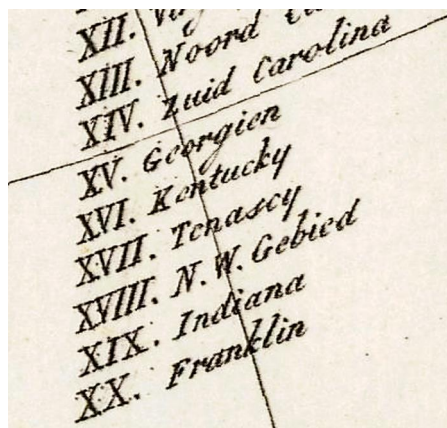 XII. Vir
XIII. Noord Ca
XIV. Zuid Carolina
XV. Georgien
XVI. Kentucky
XVII. Tenascy
XVIII. N.W. Gebied
XIX. Indiana
XX. Franklin